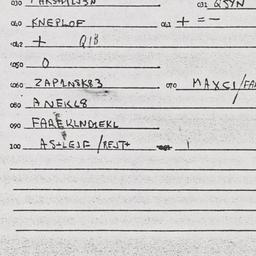 030 031 QSYN
040 KNEPLOF 041 + = -
042 + Q18
050 O
060 ZAP1N8K83 070 MAXSI/FA
080 ANEKL8
090 FAREKLND1EKL
100 AS+LEJF /REJT+